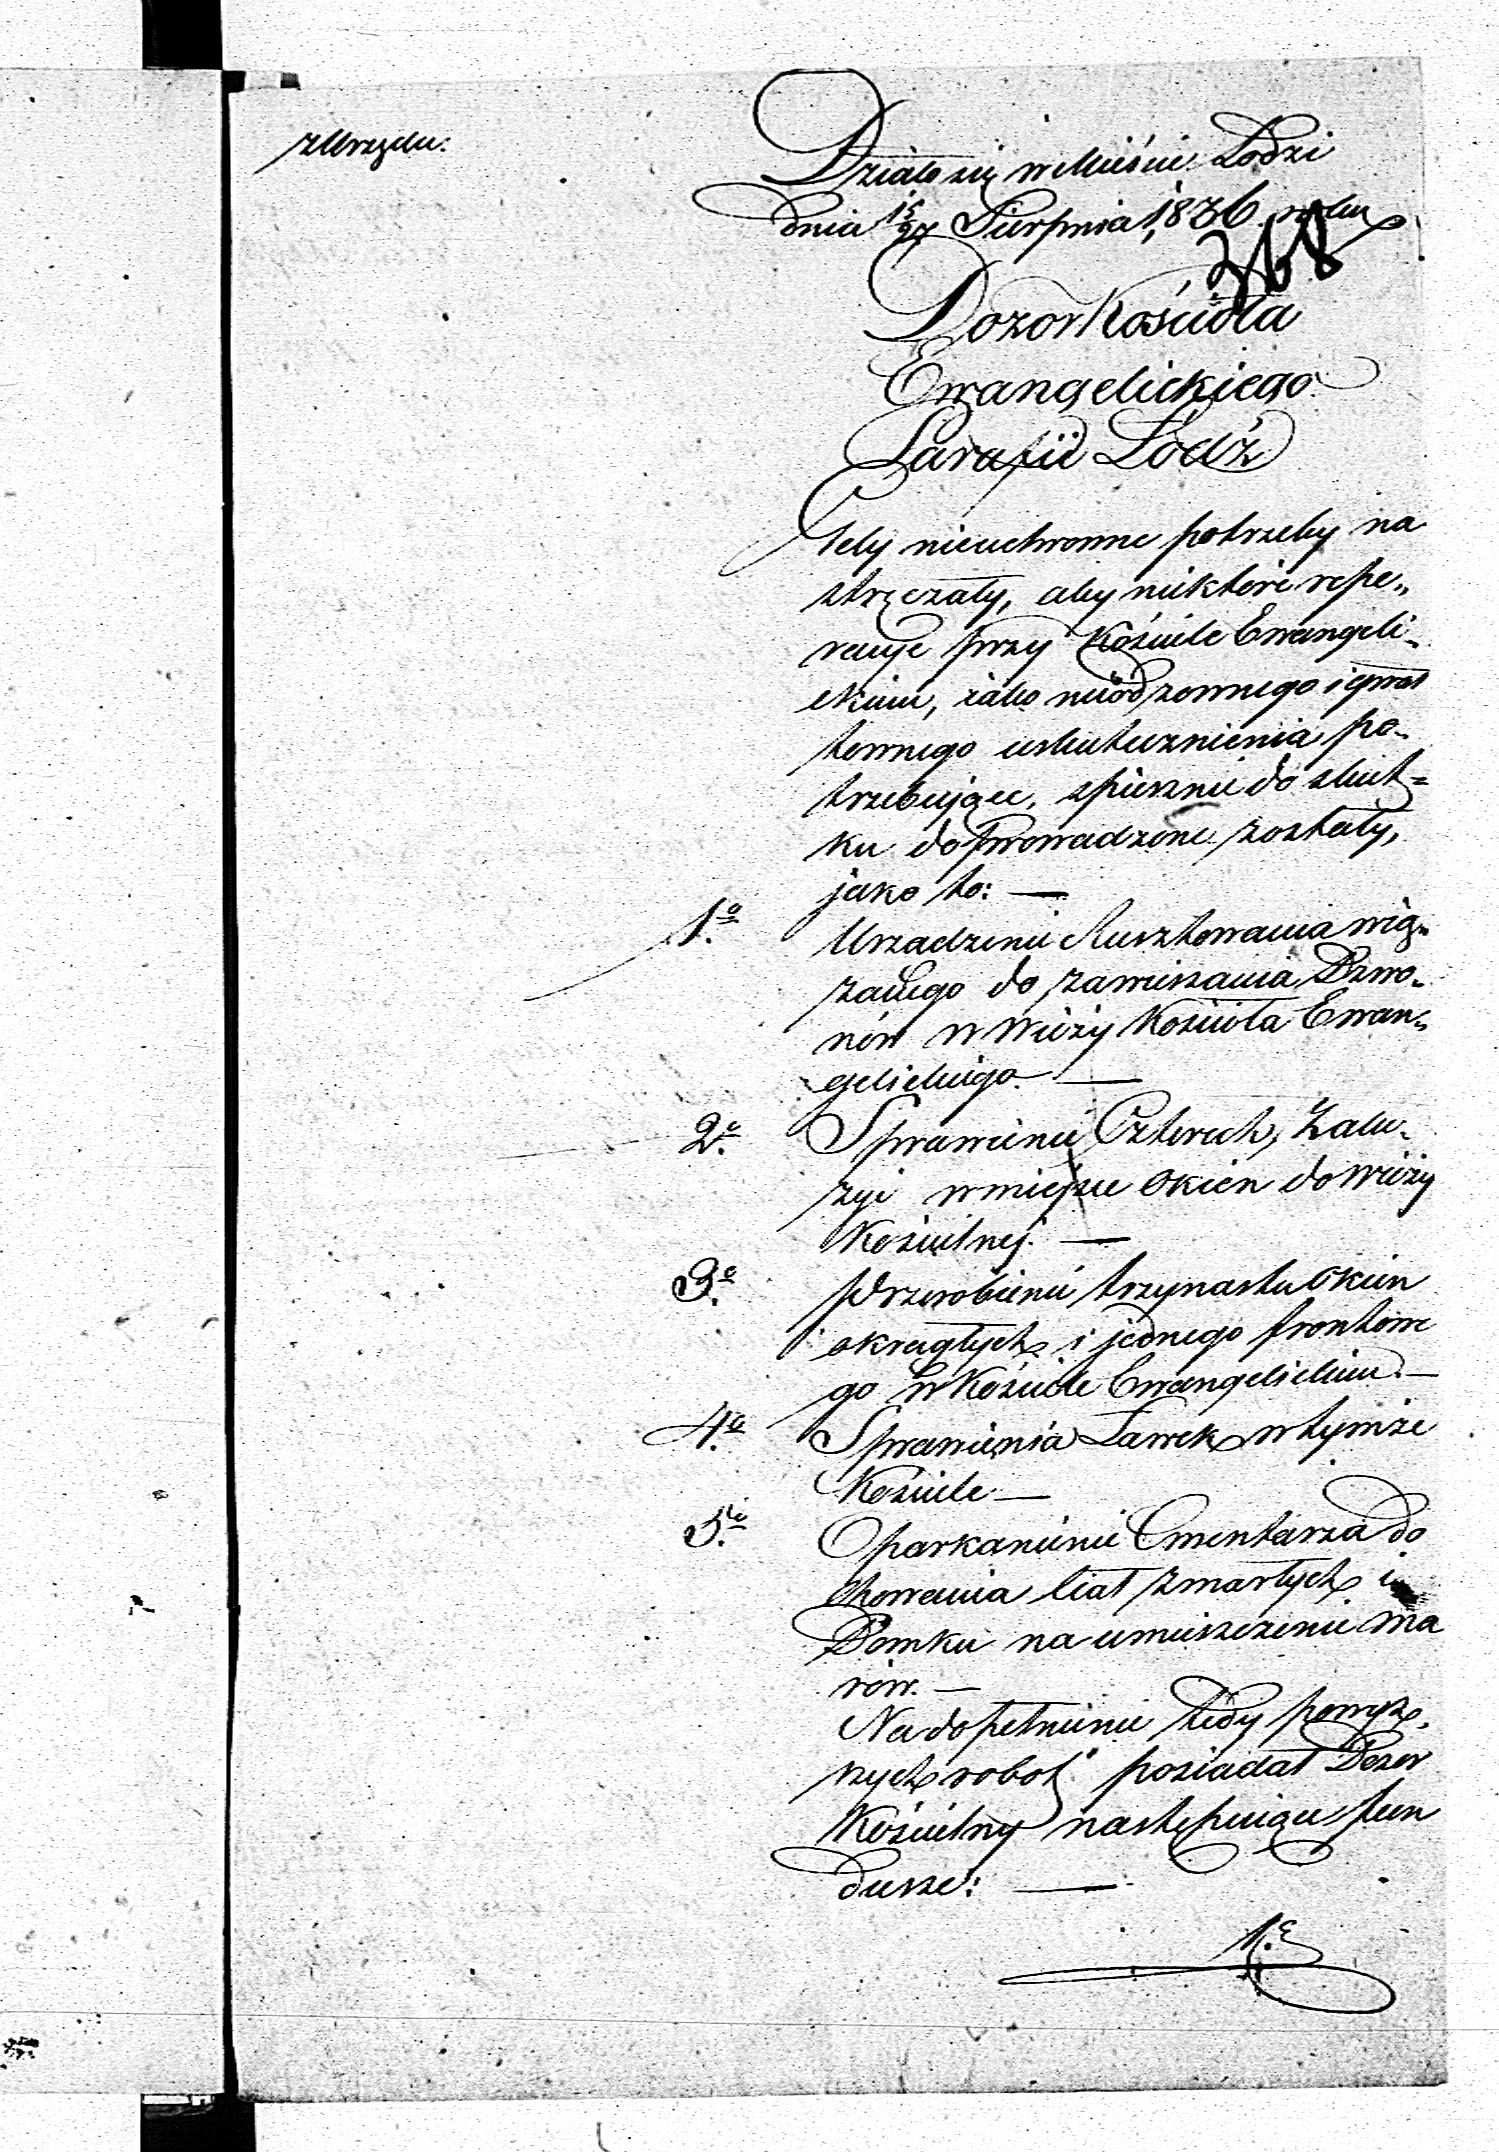 z Urzędu.
Działo się w Mieście Łodzi
dnia 15/27 Sierpnia 1836 roku
368
Dozor Kościoła
Ewangelickiego
Parafii Łódź
Gdy nieuchronne potrzeby na
stręczały, aby niektóre repe„
racye przy Kościele Ewangeli„
ckim, iako nieodzownego i gwał
townego uskutecznienia po„
trzebuiące, spiesznie do skut=
ku doprowadzone zostały,
jako to: —
1o Urzadzenie Rusztowania wią„
załego do zawieszania Dzwo„
nów w Wieży Kościoła Ewan„
gelickiego. —
2o Sprawienie Czterech, Zalu„
zyi w miejsce Okien do Wieży
Kościelnej. —
3o Przerobienie trzynastu Okien
okrągłych i jednego frontowe
go w Kościele Ewangelickim. —
4o Sprawienia Ławek w tymże
Kościele —
5to Oparkanienie Cmentarza do
chowania Ciał zmarłych i
Domku na umieszczenie ma
rów. —
Na dopełnienie tedy powyż„
szych robot posiadał Dozor
Kościelny następuiące fun
dusze: —
1.e